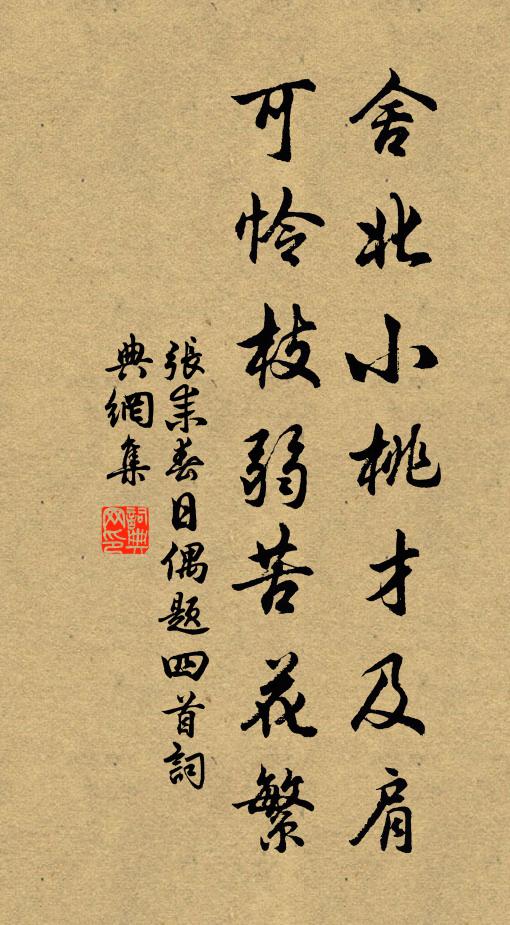 舍北小桃才及肩
可怜枝弱苦花繁
張耒春日偶題四首詞
典網集
詞典網印